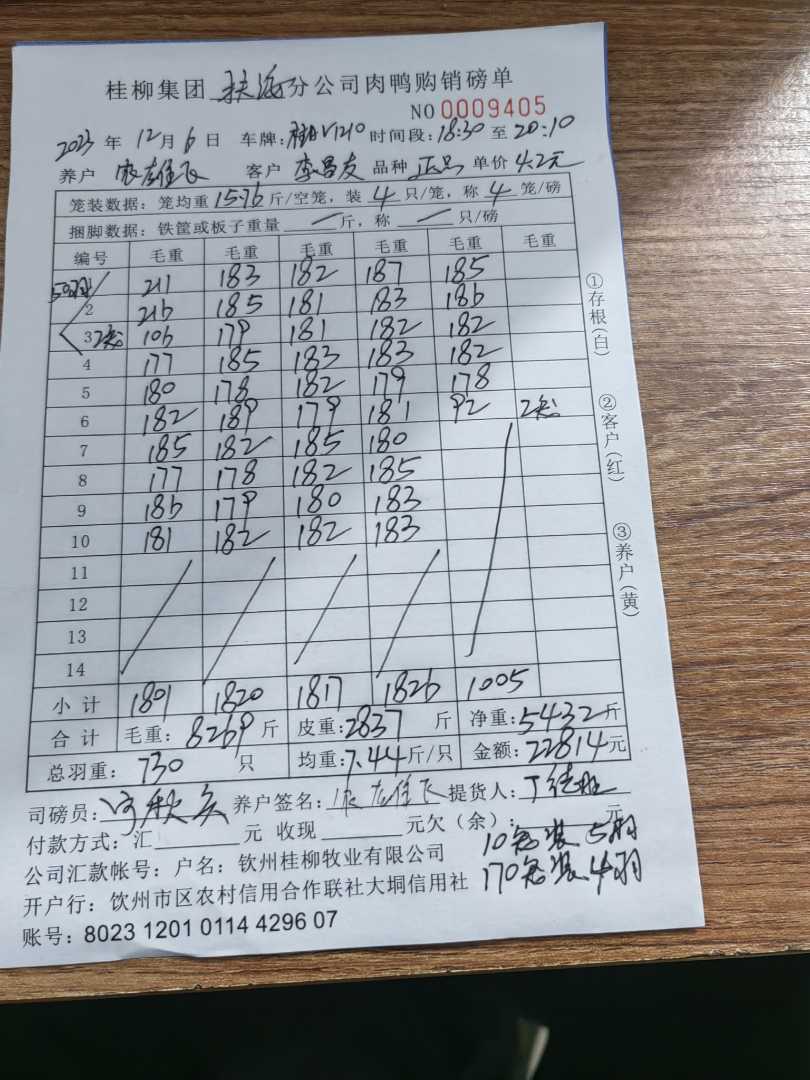 桂柳集团 扶海 分公司肉鸭购销磅单
NO 0009405
2023 年 12 月 6 日 车牌: V1210 时间段: 18:30 至 20:10
养户 客户 李昌友 品种 正品 单价 4.2元
笼装数据: 笼均重 15.76 斤/空笼, 装 4 只/笼, 称 4 笼/磅
捆脚数据: 铁筐或板子重量 — 斤, 称 — 只/磅
编号 毛重 毛重 毛重 毛重 毛重 毛重
5羽 211 183 182 187 185
2 216 185 181 183 186
3 2笼 106 179 181 182 182
4 177 185 183 183 182
5 180 178 182 179 178
6 182 189 179 181 92 2笼
7 185 182 185 180
8 177 178 182 185
9 186 179 180 183
10 181 182 182 183
11
12
13
14
小计 1801 1820 1817 1826 1005
合计 毛重: 8269 斤 皮重: 2837 斤 净重: 5432 斤
总羽重: 730 只 均重: 7.44 斤/只 金额: 22814 元
司磅员: 养户签名: 提货人:
付款方式: 汇 元 收现 元欠(余): 元
10笼装5羽
公司汇款帐号: 户名: 钦州桂柳牧业有限公司
170笼装4羽
开户行: 饮州市区农村信用合作联社大垌信用社
账号: 8023 1201 0114 4296 07
①存根(白)
②客户(红)
③养户(黄)